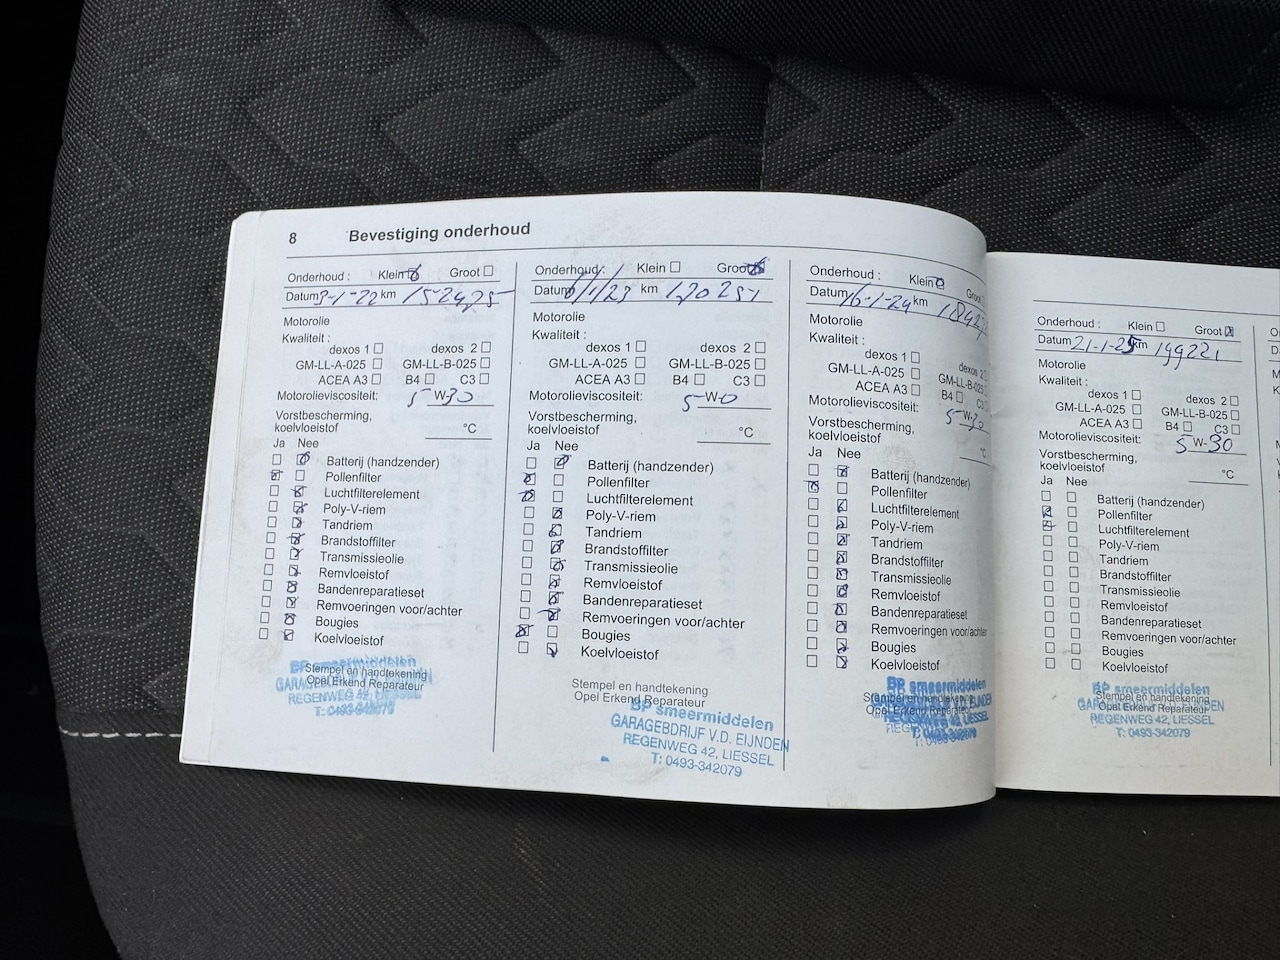 8 Bevestiging onderhoud
Onderhoud : Klein Groot
Datum 3-1-22 km 152475
Motorolie
Kwaliteit :
dexos 1 dexos 2
GM-LL-A-025 GM-LL-B-025
ACEA A3 B4 C3
Motorolieviscositeit: 5 W-30
Vorstbescherming,
koelvloeistof °C
Ja Nee
Batterij (handzender)
Pollenfilter
Luchtfilterelement
Poly-V-riem
Tandriem
Brandstoffilter
Transmissieolie
Remvloeistof
Bandenreparatieset
Remvoeringen voor/achter
Bougies
Koelvloeistof
Stempel en handtekening
Opel Erkend Reparateur
BP smeermiddelen
REGENWEG 42, LIESSEL
T: 0493-342079
Onderhoud: Klein Groot
Datum 6/1/23 km 170251
Motorolie
Kwaliteit :
dexos 1 dexos 2
GM-LL-A-025 GM-LL-B-025
ACEA A3 B4 C3
Motorolieviscositeit: 5 W-0
Vorstbescherming,
koelvloeistof °C
Ja Nee
Batterij (handzender)
Pollenfilter
Luchtfilterelement
Poly-V-riem
Tandriem
Brandstoffilter
Transmissieolie
Remvloeistof
Bandenreparatieset
Remvoeringen voor/achter
Bougies
Koelvloeistof
Stempel en handtekening
Opel Erkend Reparateur
BP smeermiddelen
GARAGEBDRIJF V.D. EIJNDEN
REGENWEG 42, LIESSEL
T: 0493-342079
Onderhoud : Klein Groot
Datum 16-1-24 km
Motorolie
Kwaliteit :
dexos 1 dexos
GM-LL-A-025 GM-LL-B-025
ACEA A3 B4 C3
Motorolieviscositeit: 5 W-30
Vorstbescherming,
koelvloeistof °C
Ja Nee
Batterij (handzender)
Pollenfilter
Luchtfilterelement
Poly-V-riem
Tandriem
Brandstoffilter
Transmissieolie
Remvloeistof
Bandenreparatieset
Remvoeringen voor/achter
Bougies
Koelvloeistof
BP smeermiddelen
Onderhoud : Klein Groot
Datum 21-1-25 km 199221
Motorolie
Kwaliteit :
dexos 1 dexos 2
GM-LL-A-025 GM-LL-B-025
ACEA A3 B4 C3
Motorolieviscositeit: 5 W-30
Vorstbescherming,
koelvloeistof °C
Ja Nee
Batterij (handzender)
Pollenfilter
Luchtfilterelement
Poly-V-riem
Tandriem
Brandstoffilter
Transmissieolie
Remvloeistof
Bandenreparatieset
Remvoeringen voor/achter
Bougies
Koelvloeistof
Stempel en handtekening
Opel Erkend Reparateur
BP smeermiddelen
GARAGEBDRIJF V.D. EIJNDEN
REGENWEG 42, LIESSEL
T: 0493-342079